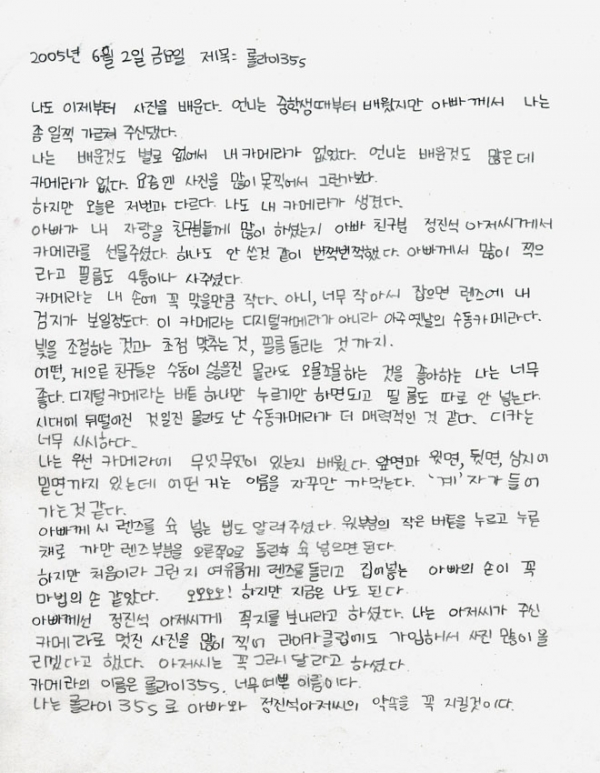 2005년 6월 2일 금요일 제목: 롤라이35s
나도 이제부터 사진을 배운다. 언니는 중학생때부터 배웠지만 아빠께서 나는
좀 일찍 가르쳐 주신댔다.
나는 배운것도 별로 없어서 내 카메라가 없었다. 언니는 배운것도 많은데
카메라가 없다. 요즘엔 사진을 많이 못찍어서 그런가보다.
하지만 오늘은 저번과 다르다. 나도 내 카메라가 생겼다.
아빠가 내 자랑을 친구분들께 많이 하셨는지 아빠 친구분 정진석 아저씨께서
카메라를 선물주셨다. 하나도 안 쓴것 같이 번쩍번쩍했다. 아빠께서 많이 찍으
라고 필름도 4통이나 사주셨다.
카메라는 내 손에 꼭 맞을만큼 작다. 아니, 너무 작아서 잡으면 렌즈에 내
검지가 보일정도다. 이 카메라는 디지털카메라가 아니라 아주 옛날의 수동카메라다.
빛을 조절하는 것과 초점 맞추는 것, 필름 돌리는 것 까지.
어떤, 게으른 친구들은 수동이 싫을진 몰라도 오물조물하는 것을 좋아하는 나는 너무
좋다. 디지털 카메라는 버튼 하나만 누르기만 하면되고 필름도 따로 안 넣는다.
시대에 뒤떨어진 것일진 몰라도 난 수동카메라가 더 매력적인 것 같다. 디카는
너무 시시하다.
나는 우선 카메라에 무엇무엇이 있는지 배웠다. 앞면과 윗면, 뒷면, 심지어
밑면까지 있는데 어떤 거는 이름을 자꾸만 까먹는다. '계'자가 들어
가는것 같다.
아빠께서 렌즈를 쏙 넣는 법도 알려주셨다. 윗부분의 작은 버튼을 누르고 누른
채로 가만 렌즈부분을 오른쪽으로 돌린후 쏙 넣으면 된다.
하지만 처음이라 그런지 여유롭게 렌즈를 돌리고 집어넣는 아빠의 손이 꼭
마법의 손 같았다. 오오오오! 하지만 지금은 나도 된다
아빠께선 정진석 아저씨께 쪽지를 보내라고 하셨다. 나는 아저씨가 주신
카메라로 멋진 사진을 많이 찍어 라이카클럽에도 가입해서 사진 많이 올
리겠다고 했다. 아저씨는 꼭 그래 달라고 하셨다.
카메라의 이름은 롤라이35s. 너무예쁜 이름이다.
나는 롤라이 35s 로 아빠와 정진석아저씨의 약속을 꼭 지킬것이다.